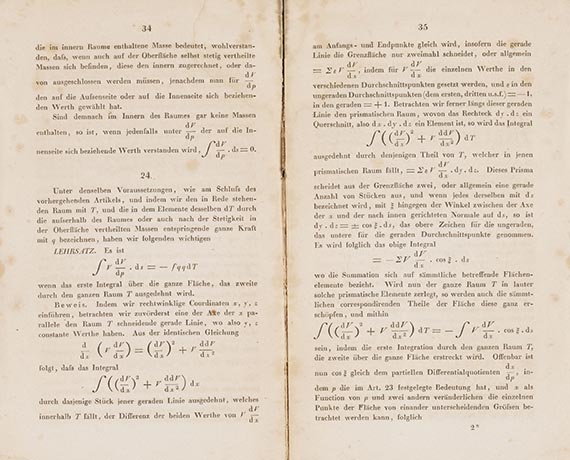 34
die im innern Raume enthaltene Masse bedeutet, wohlverstan-
den, dafs, wenn auch auf der Oberfläche selbst stetig vertheilte
Massen sich befinden, diese den innern zugerechnet, oder da-
von ausgeschlossen werden müssen, jenachdem man für dV/dp
den auf die Aufsenseite oder auf die Innenseite sich beziehen-
den Werth gewählt hat.
Sind demnach im Innern des Raumes gar keine Massen
enthalten, so ist, wenn jedenfalls unter dV/dp der auf die In-
nenseite sich beziehende Werth verstanden wird, ∫ dV/dp . ds = 0.
24.
Unter denselben Voraussetzungen, wie am Schlufs des
vorhergehenden Artikels, und indem wir den in Rede stehen-
den Raum mit T, und die in dem Elemente desselben dT durch
die aufserhalb des Raumes oder auch nach der Stetigkeit in
der Oberfläche vertheilten Massen entspringende ganze Kraft
mit q bezeichnen, haben wir folgenden wichtigen
LEHRSATZ. Es ist
∫ V dV/dp . ds = − ∫ qq dT
wenn das erste Integral über die ganze Fläche, das zweite
durch den ganzen Raum T ausgedehnt wird.
Beweis. Indem wir rechtwinklige Coordinaten x, y, z
einführen, betrachten wir zuvörderst eine der Axe der x pa-
rallele den Raum T schneidende gerade Linie, wo also y, z
constante Werthe haben. Aus der identischen Gleichung
d/dx (V dV/dx) = (dV/dx)² + V ddV/dx²
folgt, dafs das Integral
∫ ((dV/dx)² + V ddV/dx²) dx
durch dasjenige Stück jener geraden Linie ausgedehnt, welches
innerhalb T fällt, der Differenz der beiden Werthe von V dV/dx
35
am Anfangs- und Endpunkte gleich wird, insofern die gerade
Linie die Grenzfläche nur zweimahl schneidet, oder allgemein
= Σ ε V dV/dx, indem für V dV/dx die einzelnen Werthe in den
verschiedenen Durchschnittspunkten gesetzt werden, und ε in den
ungeraden Durchschnittspunkten (dem ersten, dritten u.s.f.) = −1,
in den geraden = +1. Betrachten wir ferner längs dieser geraden
Linie den prismatischen Raum, wovon das Rechteck dy . dz ein
Querschnitt, also dx . dy . dz ein Element ist, so wird das Integral
∫ ((dV/dx)² + V ddV/dx²) dT
ausgedehnt durch denjenigen Theil von T, welcher in jenen
prismatischen Raum fällt, = Σ ε V dV/dx . dy . dz. Dieses Prisma
scheidet aus der Grenzfläche zwei, oder allgemein eine gerade
Anzahl von Stücken aus, und wenn jedes derselben mit ds
bezeichnet wird, mit ξ hingegen der Winkel zwischen der Axe
der x und der nach innen gerichteten Normale auf ds, so ist
dy . dz = ± cos ξ . ds, das obere Zeichen für die ungeraden,
das untere für die geraden Durchschnittspunkte genommen.
Es wird folglich das obige Integral
= − Σ V dV/dx . cos ξ . ds
wo die Summation sich auf sämmtliche betreffende Flächen-
elemente bezieht. Wird nun der ganze Raum T in lauter
solche prismatische Elemente zerlegt, so werden auch die sämmt-
lichen correspondirenden Theile der Fläche diese ganz er-
schöpfen, und mithin
∫ ((dV/dx)² + V ddV/dx²) dT = − ∫ V dV/dx . cos ξ . ds
sein, indem die erste Integration durch den ganzen Raum T,
die zweite über die ganze Fläche erstreckt wird. Offenbar ist
nun cos ξ gleich dem partiellen Differentialquotienten dx/dp, in-
dem p die im Art. 23 festgelegte Bedeutung hat, und x als
Function von p und zwei andern veränderlichen die einzelnen
Punkte der Fläche von einander unterscheidenden Gröfsen be-
trachtet werden kann, folglich
2*